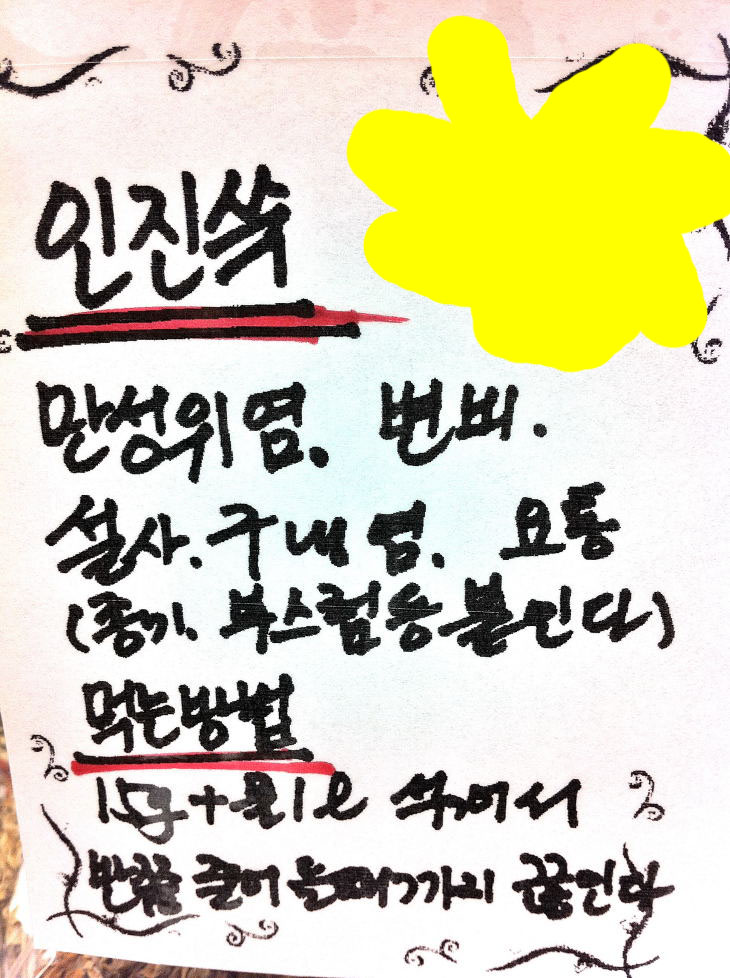 인진쑥
만성위염. 변비.
설사. 구내염. 요통
(종기. 부스럼등 붙인다)
먹는방법
15g+물1ℓ 섞어서
반쯤 줄어들때까지 끓인후